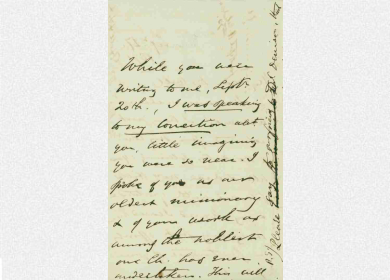 While you were
writing to me, Sept.
20th., I was speaking
to my Convention abt
you, little imagining
you were so near. I
spoke of you as our
oldest missionary
& of your work as
among the noblest
one Ch. has ever
undertaken. This will
Please say